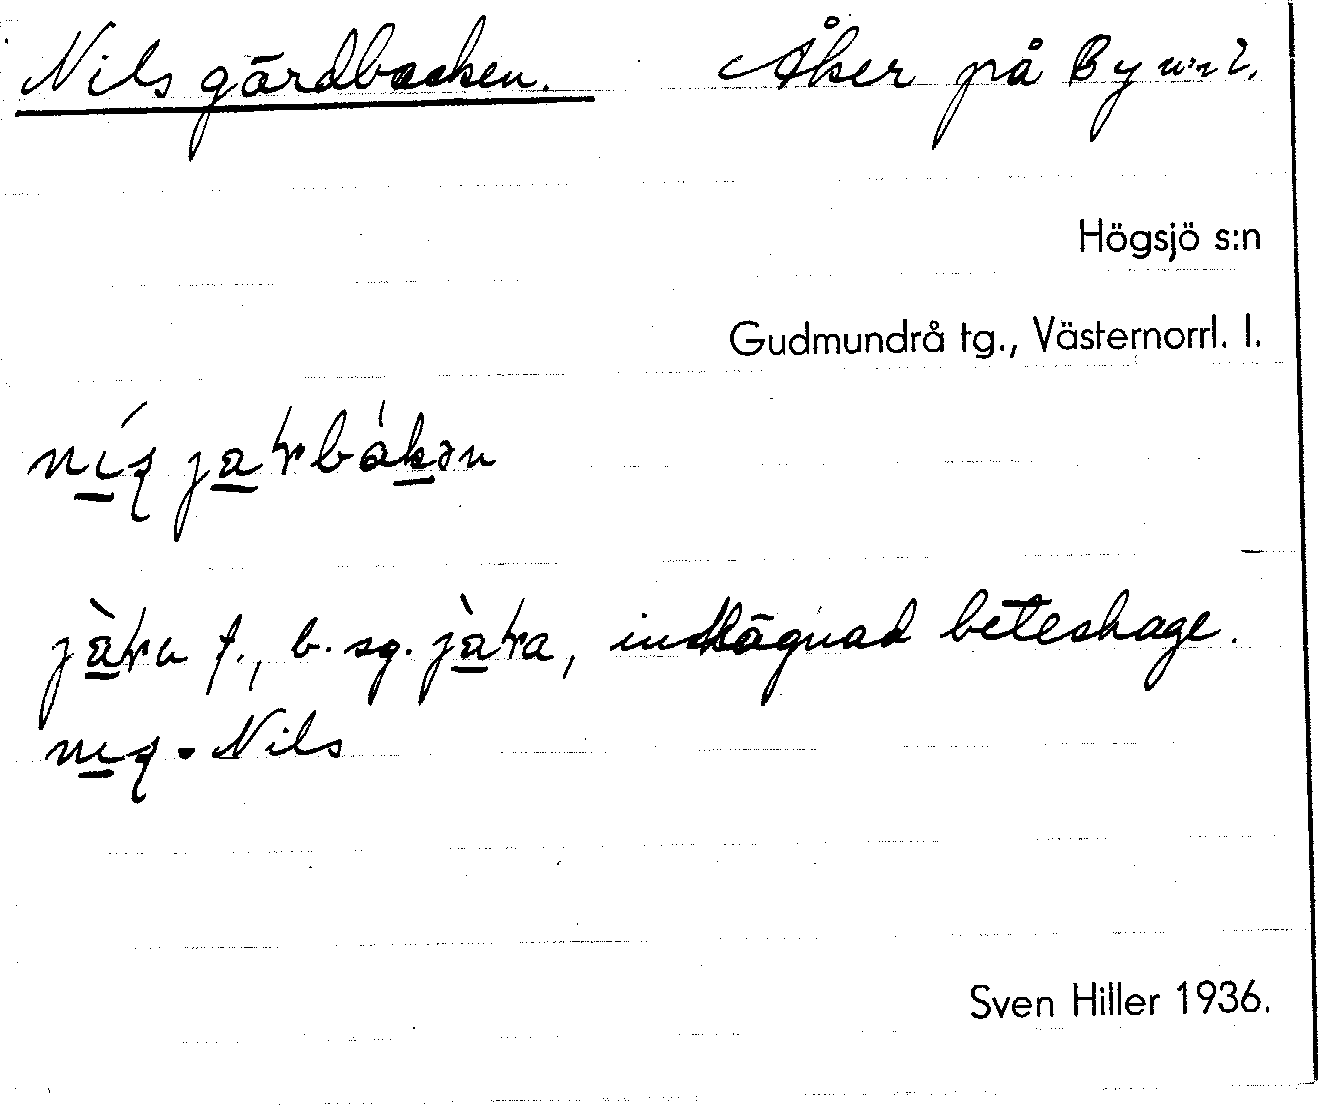 Nils gärdbacken. Åker på By nr 2.
Högsjö s:n
Gudmundrå tg., Västernorrl. l.
jàra f., b. sg. jàra, inhägnad beteshage.
Nils
Sven Hiller 1936.